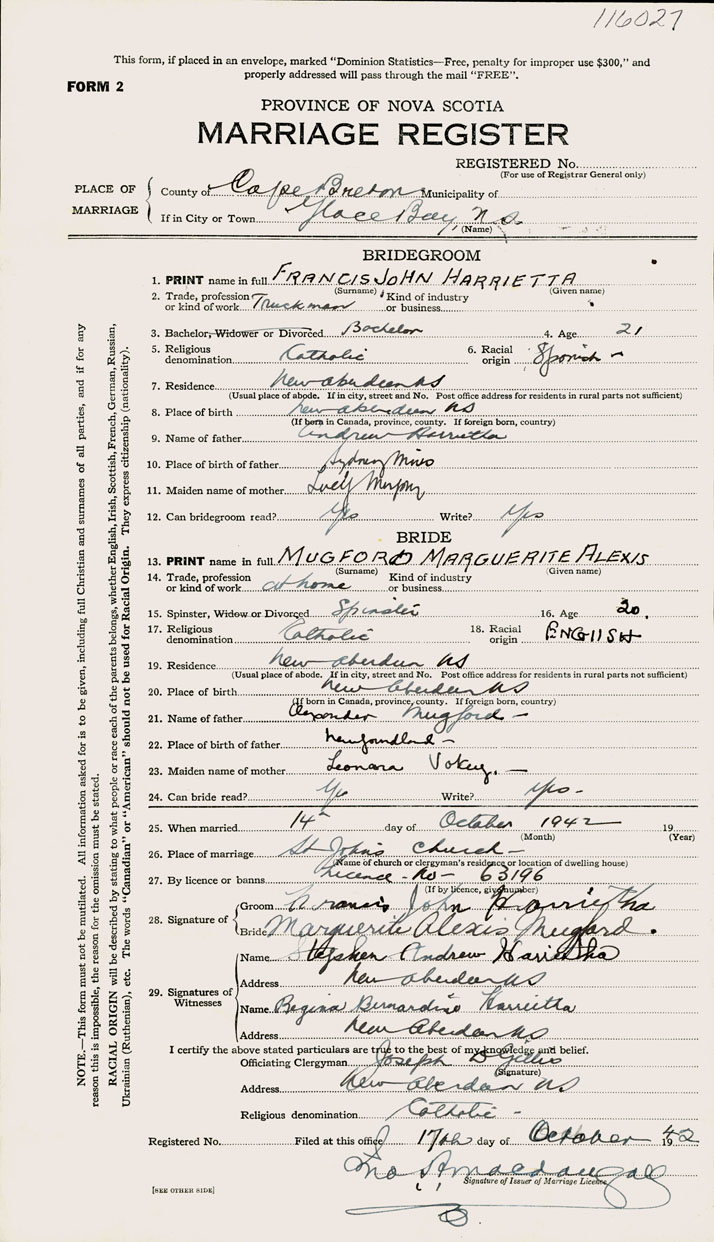 116027
This form, if placed in an envelope, marked "Dominion Statistics—Free, penalty for improper use $300," and
properly addressed will pass through the mail "FREE".
FORM 2
PROVINCE OF NOVA SCOTIA
MARRIAGE REGISTER
REGISTERED No.
(For use of Registrar General only)
PLACE OF MARRIAGE
County of Cape Breton Municipality of
If in City or Town Glace Bay, N.S.
(Name)
BRIDEGROOM
1. PRINT name in full FRANCIS JOHN HARRIETTA
(Surname) (Given name)
2. Trade, profession or kind of work Truckman Kind of industry or business
3. Bachelor, Widower or Divorced Bachelor 4. Age 21
5. Religious denomination Catholic 6. Racial origin Spanish -
7. Residence New Aberdeen NS
(Usual place of abode. If in city, street and No. Post office address for residents in rural parts not sufficient)
8. Place of birth New Aberdeen NS
(If born in Canada, province, county. If foreign born, country)
9. Name of father Andrew Harrietta
10. Place of birth of father Sydney Mines
11. Maiden name of mother Lucy Murphy
12. Can bridegroom read? Yes Write? Yes
BRIDE
13. PRINT name in full MUGFORD MARGUERITE ALEXIS
(Surname) (Given name)
14. Trade, profession or kind of work at home Kind of industry or business
15. Spinster, Widow or Divorced Spinster 16. Age 20.
17. Religious denomination Catholic 18. Racial origin ENGLISH
19. Residence New Aberdeen NS
(Usual place of abode. If in city, street and No. Post office address for residents in rural parts not sufficient)
20. Place of birth New Aberdeen NS
(If born in Canada, province, county. If foreign born, country)
21. Name of father Alexander Mugford -
22. Place of birth of father Newfoundland -
23. Maiden name of mother Leonora Vokey. -
24. Can bride read? Yes Write? Yes -
25. When married 14th day of October 1942 19
(Month) (Year)
26. Place of marriage St John's Church -
(Name of church or clergyman's residence or location of dwelling house)
27. By licence or banns Licence - No - 63196
(If by licence, give number)
28. Signature of
Groom Francis John Harrietha
Bride Marguerite Alexis Mugford.
29. Signatures of Witnesses
Name Stephen Andrew Harrietha
Address New Aberdeen NS
Name Regina Bernardine Harrietta
Address New Aberdeen NS
I certify the above stated particulars are true to the best of my knowledge and belief.
Officiating Clergyman Joseph D Gillis
(Signature)
Address New Aberdeen NS
Religious denomination Catholic -
Registered No. Filed at this office 17th day of October 1942
Signature of Issuer of Marriage Licence
[SEE OTHER SIDE]
NOTE.—This form must not be mutilated. All information asked for is to be given, including full Christian and surnames of all parties, and if for any
reason this is impossible, the reason for the omission must be stated.
RACIAL ORIGIN will be described by stating to what people or race each of the parents belongs, whether English, Irish, Scottish, French, German, Russian,
Ukrainian (Ruthenian), etc. The words "Canadian" or "American" should not be used for Racial Origin. They express citizenship (nationality).